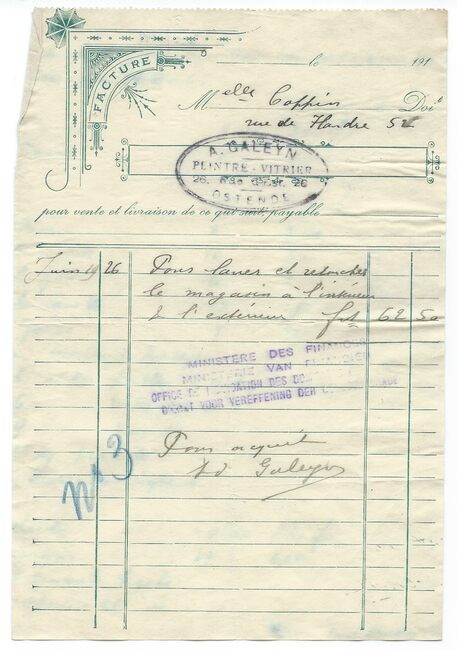 FACTURE
le 191
Melle Coppin Doit
rue de Flandre 52
A. GALEYN
PEINTRE - VITRIER
OSTENDE
pour vente et livraison de ce qui suit, payable
Juin 26 Pour laver et retoucher
le magasin à l'intérieur
& l'extérieur frs 62 50
MINISTERE DES FINANCES
MINISTERIE VAN FINANCIEN
OFFICE DE LIQUIDATION DES
DIENST VOOR VEREFFENING DER
Pour acquit
Ad Galeyn
no 3